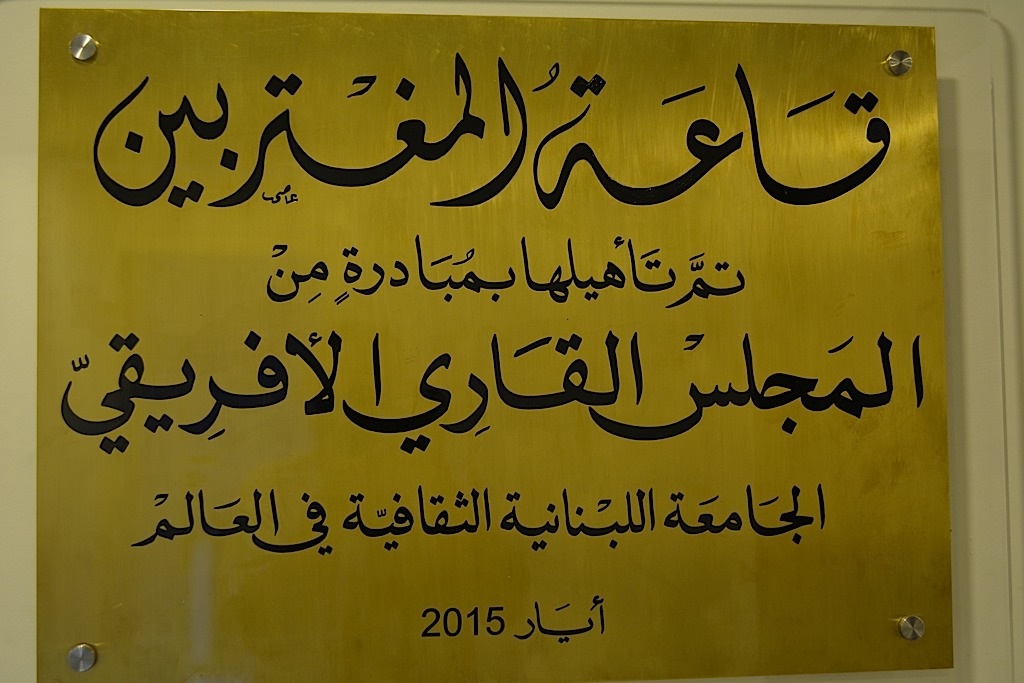 قَاعَةُ المغْتربين
تمَّ تَأهيلها بمُبَادرةٍ مِنْ
المَجلسْ القَارِي الأفرِيقيّ
الجَامعَة اللبْنانية الثقافيّة في العَالمْ
أيَار 2015